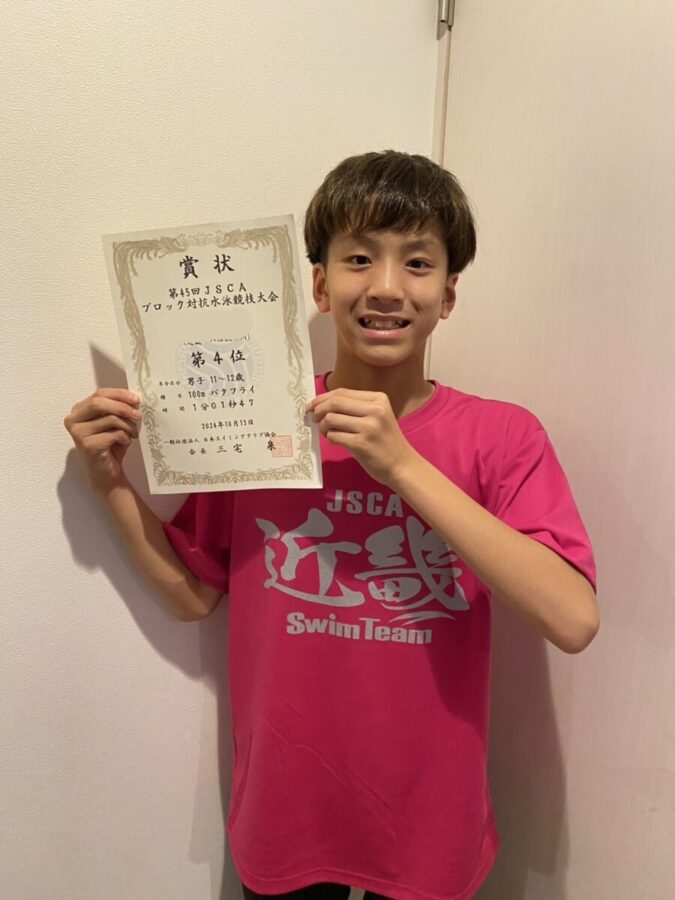 賞状
第45回JSCA
ブロック対抗水泳競技大会
第4位
年令区分 男子 11〜12歳
種目 100m バタフライ
時間 1分01秒47
2024年10月13日
一般社団法人 日本スイミングクラブ協会
会長 三宅
JSCA
近畿
Swim Team